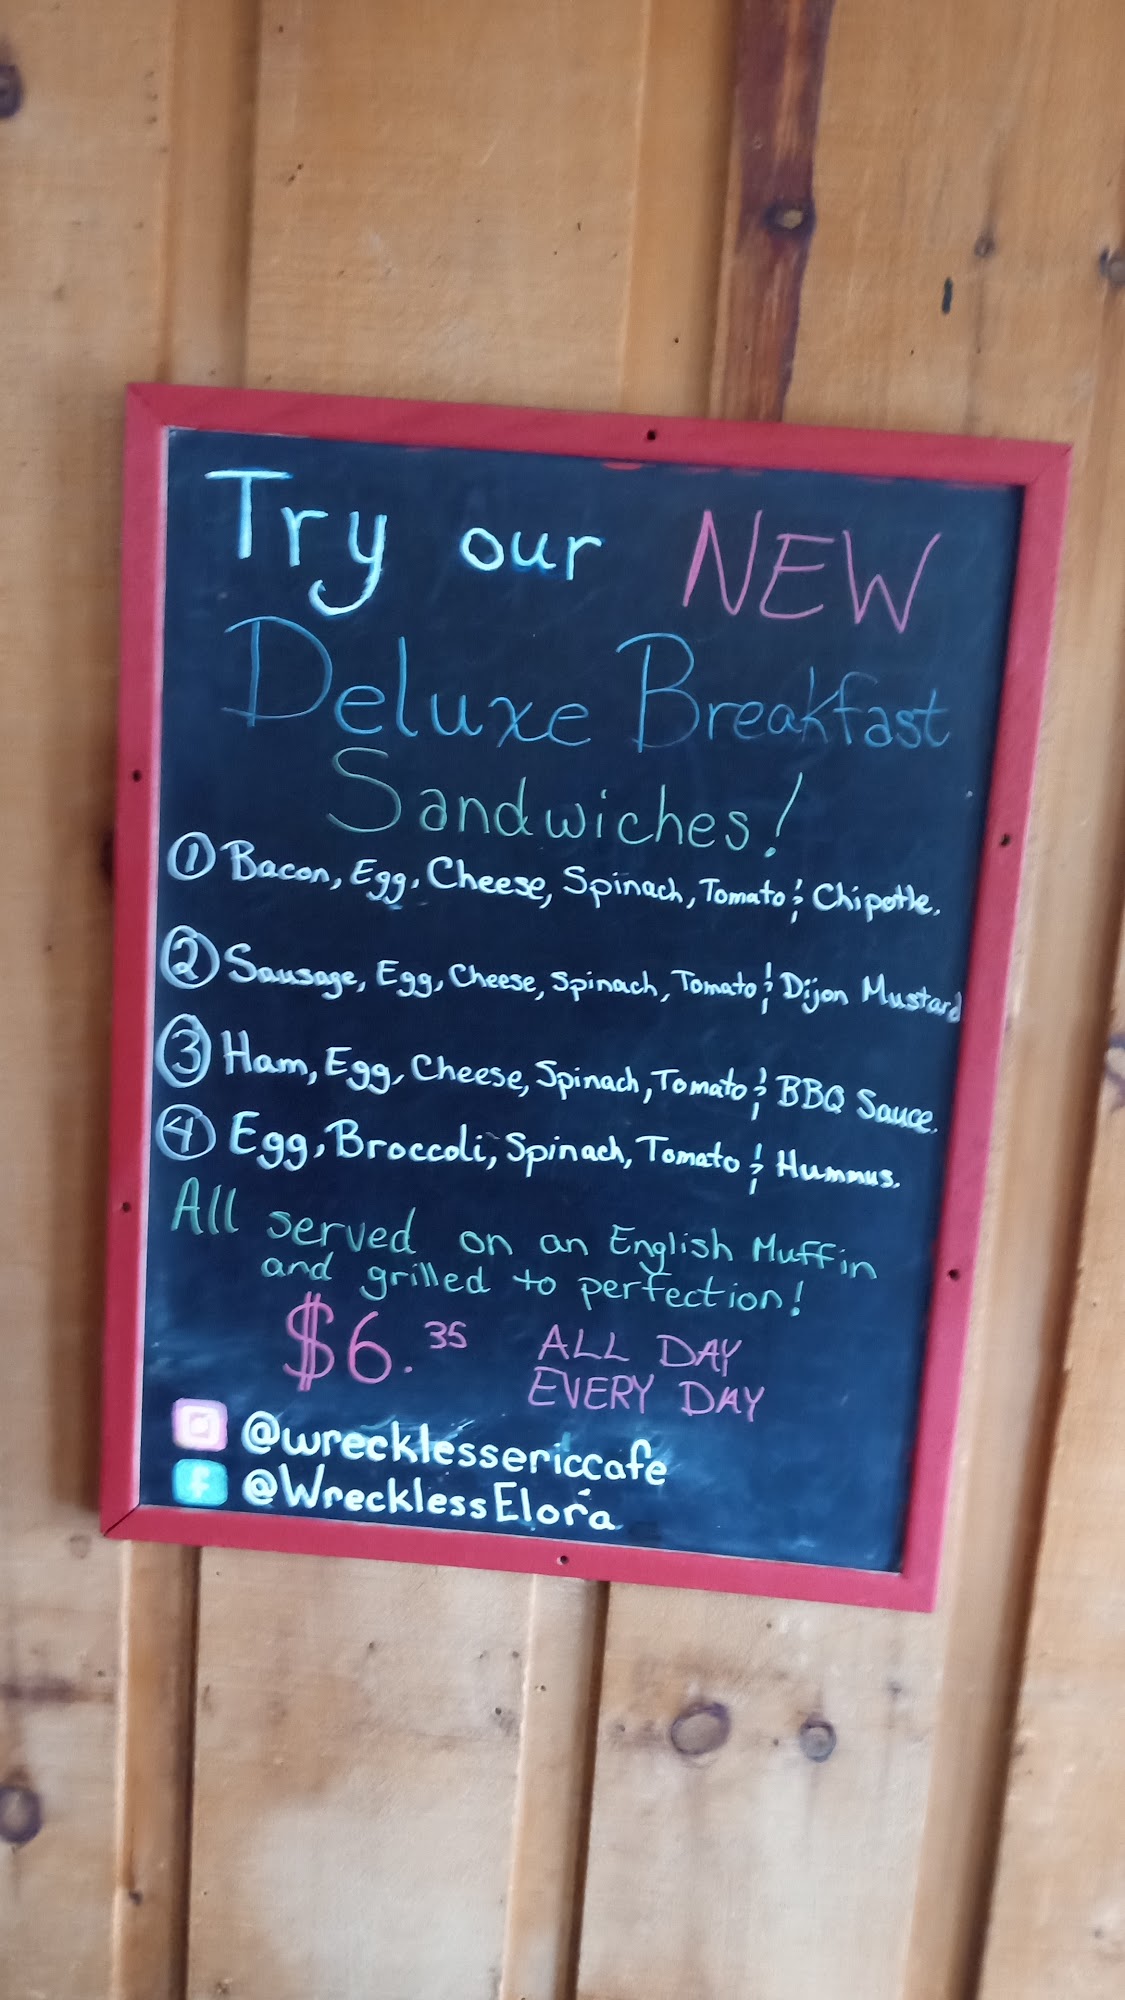 Try our NEW
Deluxe Breakfast
Sandwiches!
① Bacon, Egg, Cheese, Spinach, Tomato & Chipotle.
② Sausage, Egg, Cheese, Spinach, Tomato & Dijon Mustard
③ Ham, Egg, Cheese, Spinach, Tomato & BBQ Sauce.
④ Egg, Broccoli, Spinach, Tomato & Hummus.
All served on an English Muffin
and grilled to perfection!
$6.35 ALL DAY
EVERY DAY
@wrecklessericcafe
f @WrecklessElora